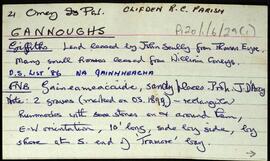 21 Omey
CLIFDEN R.C. PARISH
P120/1/6/29(1)
GANNOUGHS
Griffiths: Land leased by John Scully from Thomas Eyre.
Many small houses leased from William Coneys.
O.S. LIST '86 NA GAINMHEACHA
FNB Gaineamhacaidhe, sandy places. Prop. J. D'Arcy
Note: 2 graves (marked on OS. 1899) - rectangular
with some stones on + around them,
E-W orientation, 10' long, side by side, by
shore at S. end of 'Tranore' bay.